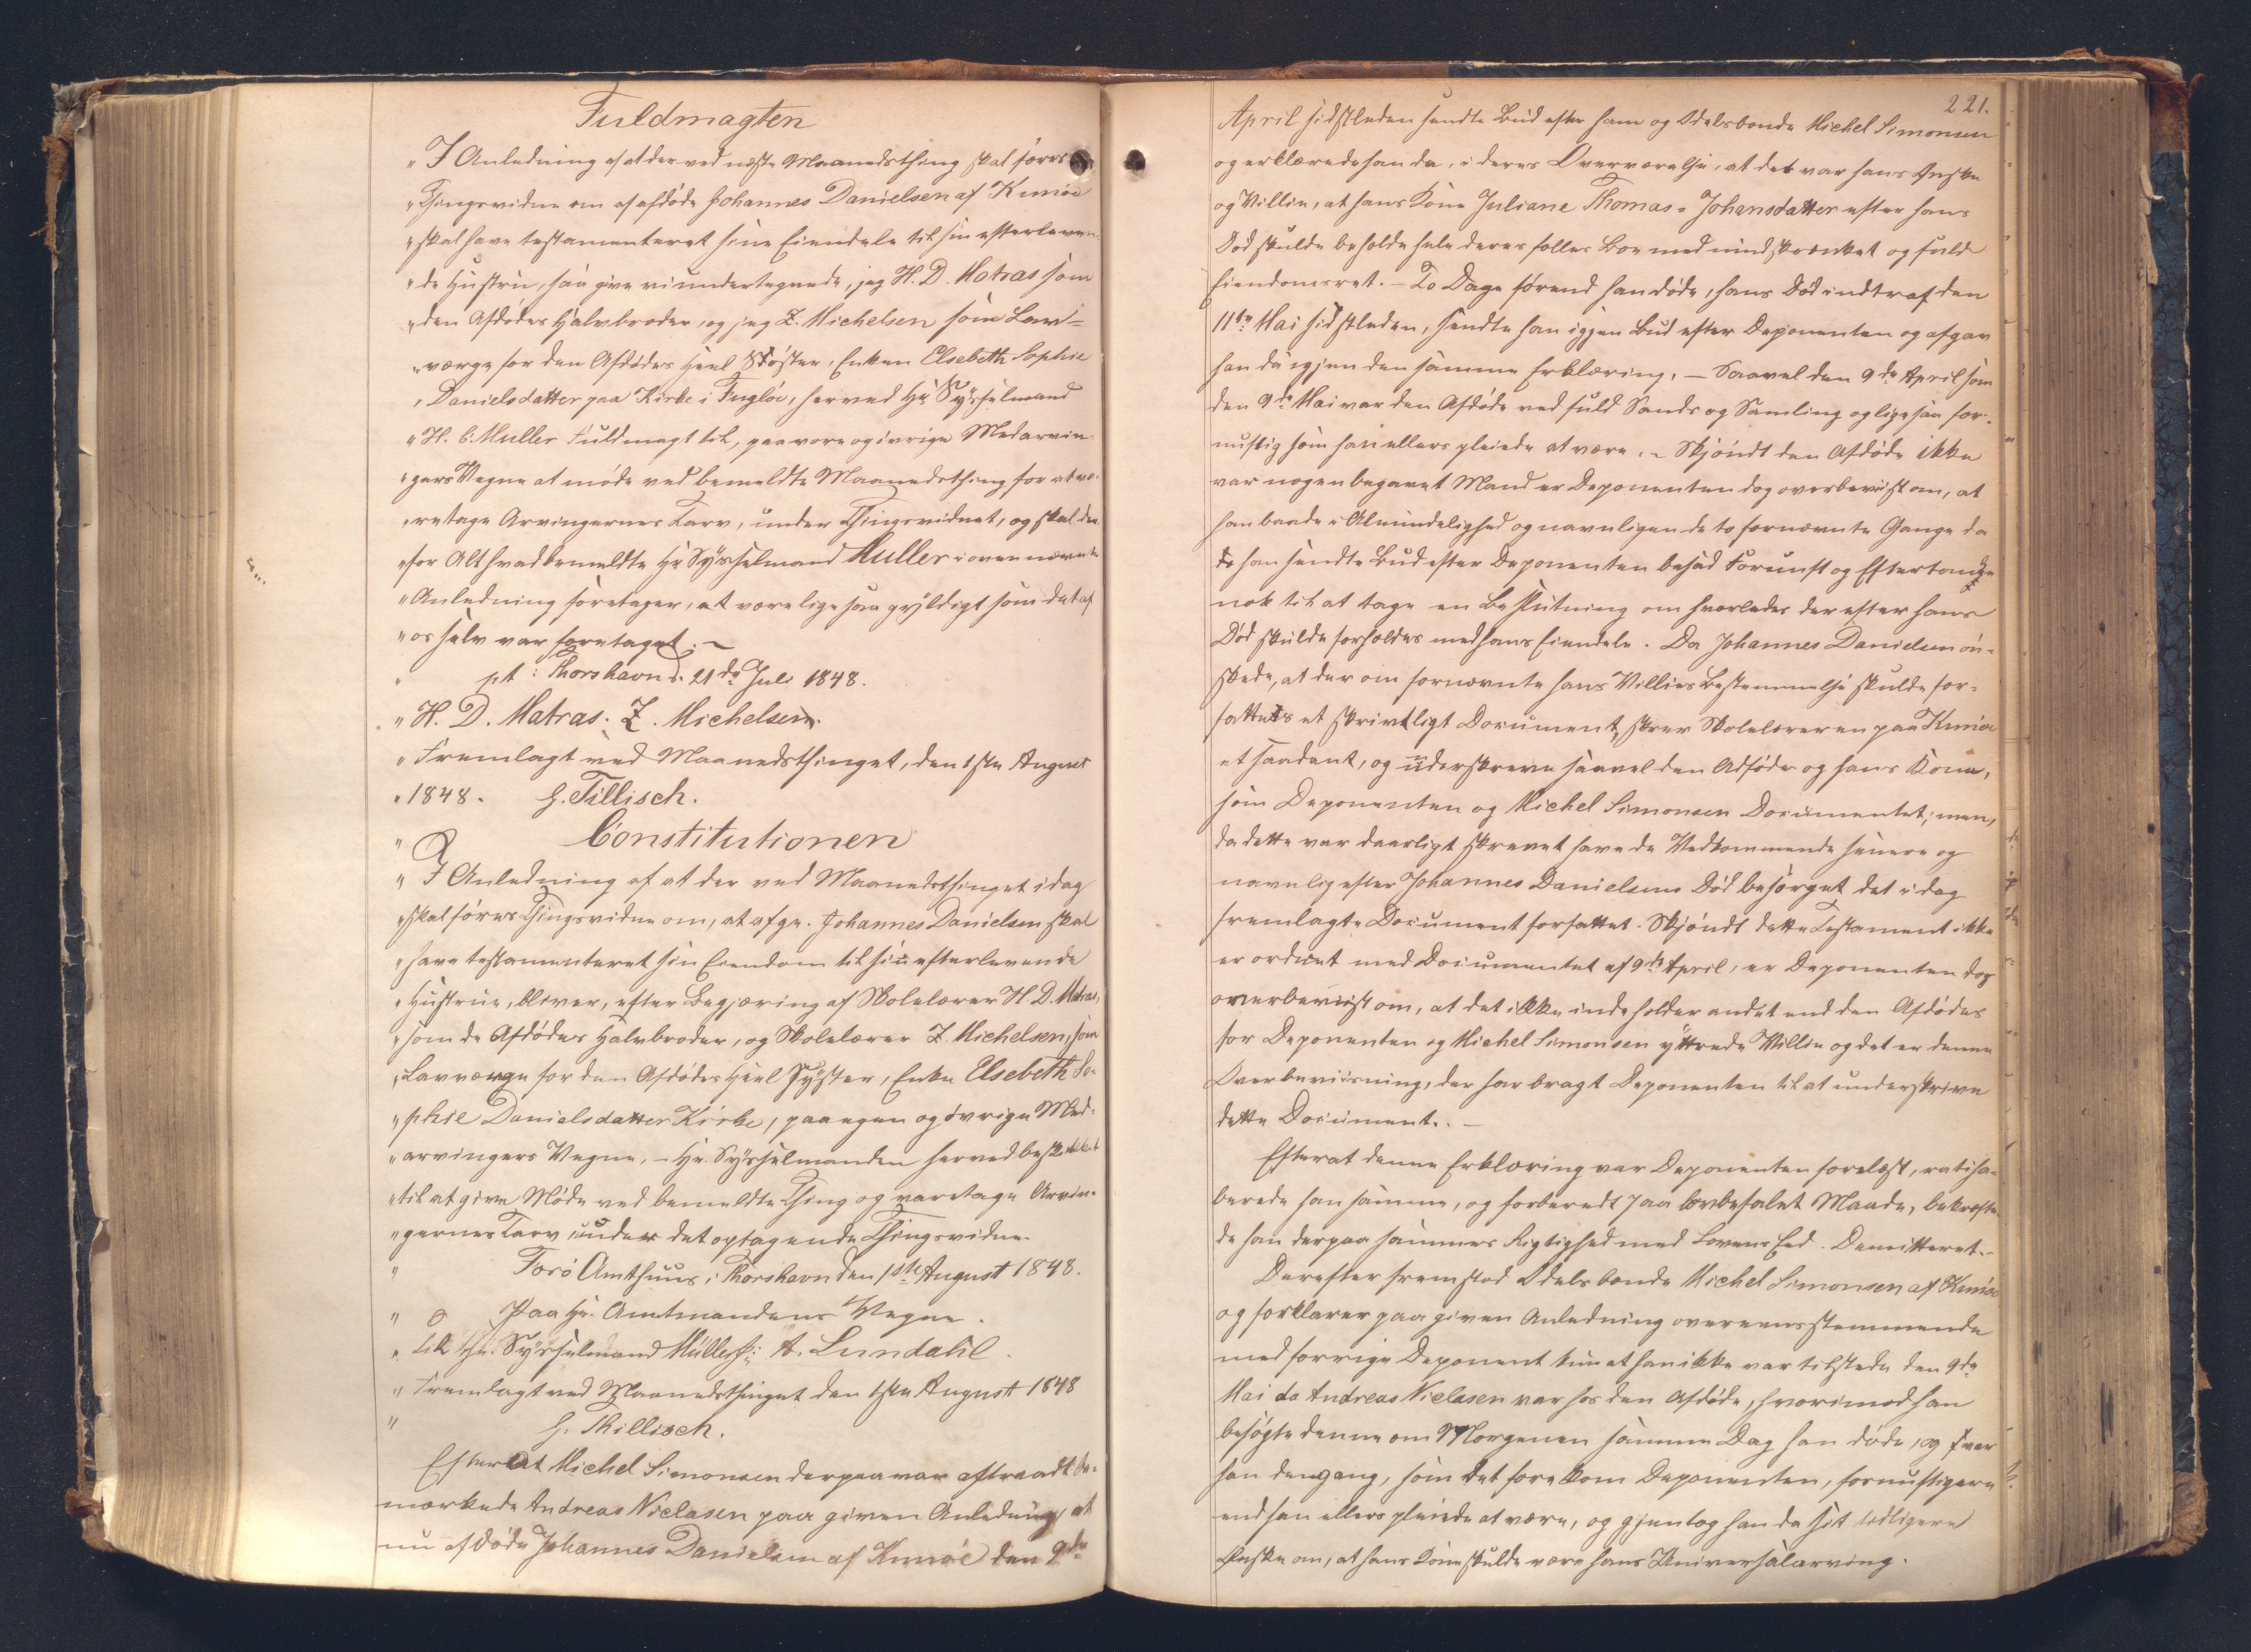 Fuldmagten
„I Anledning af at der ved næste Maanedsthing skal føres
„Thingsvidne om af afdøde Johannes Danielsen af Kunøe
„skal have testamenteret sine Eiendele til sin efterleven-
„de Hustru, saa give vi undertegnede, jeg H. D. Matras som
„den Afdødes Halvbroder, og jeg Z. Michelsen som Lav-
„værge for den Afdødes Heel Søster, Enken Elsebeth Sophie
„Danielsdatter paa Kirke i Fugløe, herved Hr Sysselmand
„H. C. Muller Fuldmagt til, paa vore og øvrige Medarvin-
„gers Vegne at møde ved bemeldte Maanedsthing for at va-
„retage Arvingernes Tarv, under Thingsvidnet, og skal der
„for Alt hvad bemeldte Hr Sysselmand Muller i ovennævnte
„Anledning foretager, at være lige saa gyldigt som det af
„os selv var foretaget. –
„ pt: Thorshavn d. 21de Juli 1848.
„H. D. Matras. Z. Michelsen.
„Fremlagt ved Maanedsthinget, den 1ste August
„1848. G. Tillisch.
„ Constitutionen
„I Anledning af at der ved Maanedsthinget idag
„skal føres Thingsvidne om, at afg. Johannes Danielsen skal
„have testamenteret sin Eiendom til sin efterlevende
„Hustrue, bliver, efter Begjæring af Skolelærer H. D. Matras,
„som de Afdødes Halvbroder, og Skolelærer Z. Michelsen, som
„Lavværge for den Afdødes Heel Syster, Enke Elsebeth So-
„phie Danielsdatter Kirke, paa egen og øvrige Med-
„arvingers Vegne, – Hr. Sysselmanden herved beskikket
„til at give Møde ved bemeldte Thing og varetage Arvin-
„gernes Tarv under det optagende Thingsvidne.
„ Færø Amthuus i Thorshavn den 1ste August 1848.
„ Paa Hr. Amtmandens Vegne.
„Til Hr. Sysselmand Müller A. Lundahl.
„Fremlagt ved Maanedsthinget den 1ste August 1848
„ G. Thillisch.
Efterat Michel Simonsen derpaa var aftraadt be-
mærkede Andreas Niclasen paa given Anledning, at
nu afdøde Johannes Danielsen af Kunøe den 9de
221.
April sidstleden sendte Bud efter ham og Odelsbonde Michel Simonsen
og erklærede han da, i deres Overværelse, at det var hans Ønske
og Villie, at hans Kone Juliane Thomas- Johansdatter efter hans
Død skulde beholde hele deres fælles Boe med uindskrænket og fuld
Eiendomsret. – To Dage førend han døde, hans Død indtraf den
11te Mai sidstleden, sendte han igjen Bud efter Deponenten og afgav
han da igjen den samme Erklæring. – Saavel den 9de April som
den 9de Mai var den Afdøde ved fuld Sands og Samling og ligesaa for-
nuftig som han ellers pleiede at være. – Skjøndt den Afdøde ikke
var nogen begavet Mand er Deponenten dog overbeviist om, at
han baade i Almindelighed og navnligen de to fornævnte Gange da
de han sendte Bud efter Deponenten besad Fornuft og Eftertanke
nok til at tage en Beslutning om hvorledes der efter hans
Død skulde forholdes med hans Eiendele. Da Johannes Danielsen øn-
skede, at der om fornævnte hans Villies Bestemmelse skulde for-
fattes et skriftligt Document, skrev Skolelæreren paa Kunøe
et saadant, og underskreve saavel den Adføde og hans Kone,
som Deponenten og Michel Simonsen Documentet; men,
da dette var daarligt skrevet have de Vedkommende senere og
navnlig efter Johannes Danielsens Død besørget det i dag
fremlagte Document forfattet. Skjøndt dette Testament ikke
er ordret med Documentet af 9de April, er Deponenten dog
overbeviist om, at det ikke indeholder andet end den Afdødes
for Deponenten og Michel Simonsen yttrede Villie og det er denne
Overbeviisning, der har bragt Deponenten til at underskrive
dette Document. –
Efterat denne Erklæring var Deponenten forelæst, ratifa-
berede han samme, og forberedt paa lovbefalet Maade, bekræfte-
de han derpaa sammes Rigtighed med Lovens Eed. Demitteret. –
Derefter fremstod Odelsbonde Michel Simonsen af Kunøe
og forklarer paa given Anledning overeensstemmende
med forrige Deponent kun at han ikke var tilstede den 9de
Mai da Andreas Niclasen var hos den Afdøde, hvorimod han
besøgte denne om Morgenen samme Dag han døde, og var
han dengang, som det forekom Deponenten, fornuftigere
end han ellers pleiede at være, og gjentog han da sit tidligere
Ønske om, at hans Kone skulde være hans Universalarving.